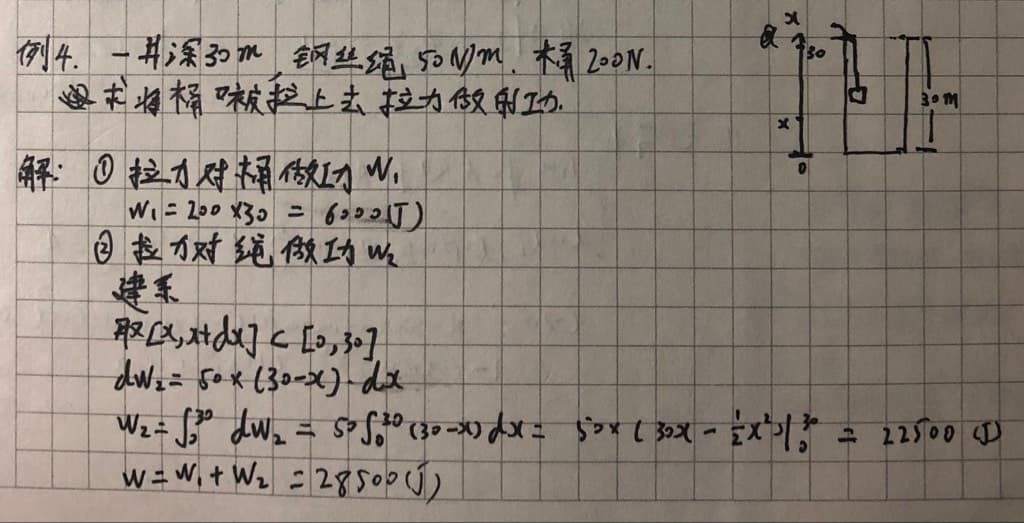 例4. 一井深30m, 钢丝绳 50N/m. 桶200N.
求将桶 被拉上去 拉力做的功.
x
30
x
0
30m
解: ① 拉力对桶做功 W₁
W₁ = 200×30 = 6000(J)
② 拉力对绳做功 W₂
建系
取[x, x+dx] ⊂ [0,30]
dW₂ = 50×(30-x)·dx
W₂ = ∫₀³⁰ dW₂ = 50∫₀³⁰(30-x)dx = 50×(30x - ½x²)|₀³⁰ = 22500 (J)
W = W₁ + W₂ = 28500(J)